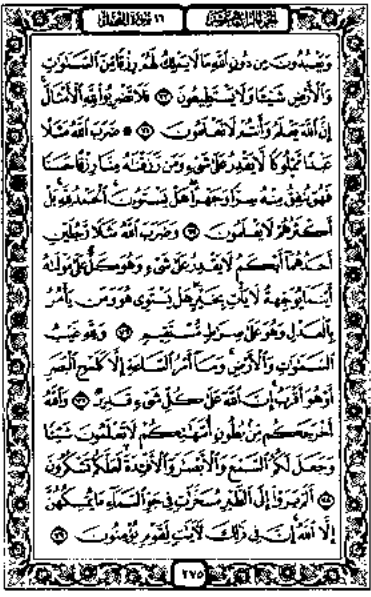 الجزء الرابع عشر ١٦ سورة النحل
وَيَعْبُدُونَ مِن دُونِ ٱللَّهِ مَا لَا يَمْلِكُ لَهُمْ رِزْقًا مِّنَ ٱلسَّمَٰوَٰتِ
وَٱلْأَرْضِ شَيْـًٔا وَلَا يَسْتَطِيعُونَ ٧٣ فَلَا تَضْرِبُوا۟ لِلَّهِ ٱلْأَمْثَالَ
إِنَّ ٱللَّهَ يَعْلَمُ وَأَنتُمْ لَا تَعْلَمُونَ ٧٤ * ضَرَبَ ٱللَّهُ مَثَلًا
عَبْدًا مَّمْلُوكًا لَّا يَقْدِرُ عَلَىٰ شَىْءٍ وَمَن رَّزَقْنَٰهُ مِنَّا رِزْقًا حَسَنًا
فَهُوَ يُنفِقُ مِنْهُ سِرًّا وَجَهْرًا هَلْ يَسْتَوُۥنَ ٱلْحَمْدُ لِلَّهِ بَلْ
أَكْثَرُهُمْ لَا يَعْلَمُونَ ٧٥ وَضَرَبَ ٱللَّهُ مَثَلًا رَّجُلَيْنِ
أَحَدُهُمَآ أَبْكَمُ لَا يَقْدِرُ عَلَىٰ شَىْءٍ وَهُوَ كَلٌّ عَلَىٰ مَوْلَىٰهُ
أَيْنَمَا يُوَجِّههُّ لَا يَأْتِ بِخَيْرٍ هَلْ يَسْتَوِى هُوَ وَمَن يَأْمُرُ
بِٱلْعَدْلِ وَهُوَ عَلَىٰ صِرَٰطٍ مُّسْتَقِيمٍ ٧٦ وَلِلَّهِ غَيْبُ
ٱلسَّمَٰوَٰتِ وَٱلْأَرْضِ وَمَآ أَمْرُ ٱلسَّاعَةِ إِلَّا كَلَمْحِ ٱلْبَصَرِ
أَوْ هُوَ أَقْرَبُ إِنَّ ٱللَّهَ عَلَىٰ كُلِّ شَىْءٍ قَدِيرٌ ٧٧ وَٱللَّهُ
أَخْرَجَكُم مِّنۢ بُطُونِ أُمَّهَٰتِكُمْ لَا تَعْلَمُونَ شَيْـًٔا
وَجَعَلَ لَكُمُ ٱلسَّمْعَ وَٱلْأَبْصَٰرَ وَٱلْأَفْـِٔدَةَ لَعَلَّكُمْ تَشْكُرُونَ
٧٨ أَلَمْ يَرَوْا۟ إِلَى ٱلطَّيْرِ مُسَخَّرَٰتٍ فِى جَوِّ ٱلسَّمَآءِ مَا يُمْسِكُهُنَّ
إِلَّا ٱللَّهُ إِنَّ فِى ذَٰلِكَ لَءَايَٰتٍ لِّقَوْمٍ يُؤْمِنُونَ ٧٩
٢٧٥